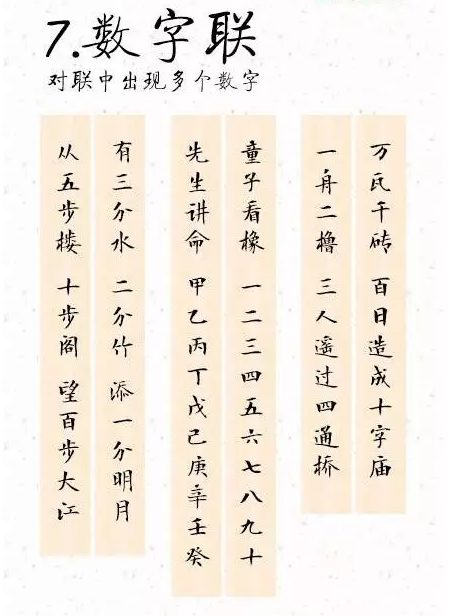 7.数字联
对联中出现多个数字
万瓦千砖 百日造成十字庙
一舟二橹 三人遥过四通桥
童子看橡 一二三四五六七八九十
先生讲命 甲乙丙丁戊己庚辛壬癸
有三分水 二分竹 添一分明月
从五步楼 十步阁 望百步大江